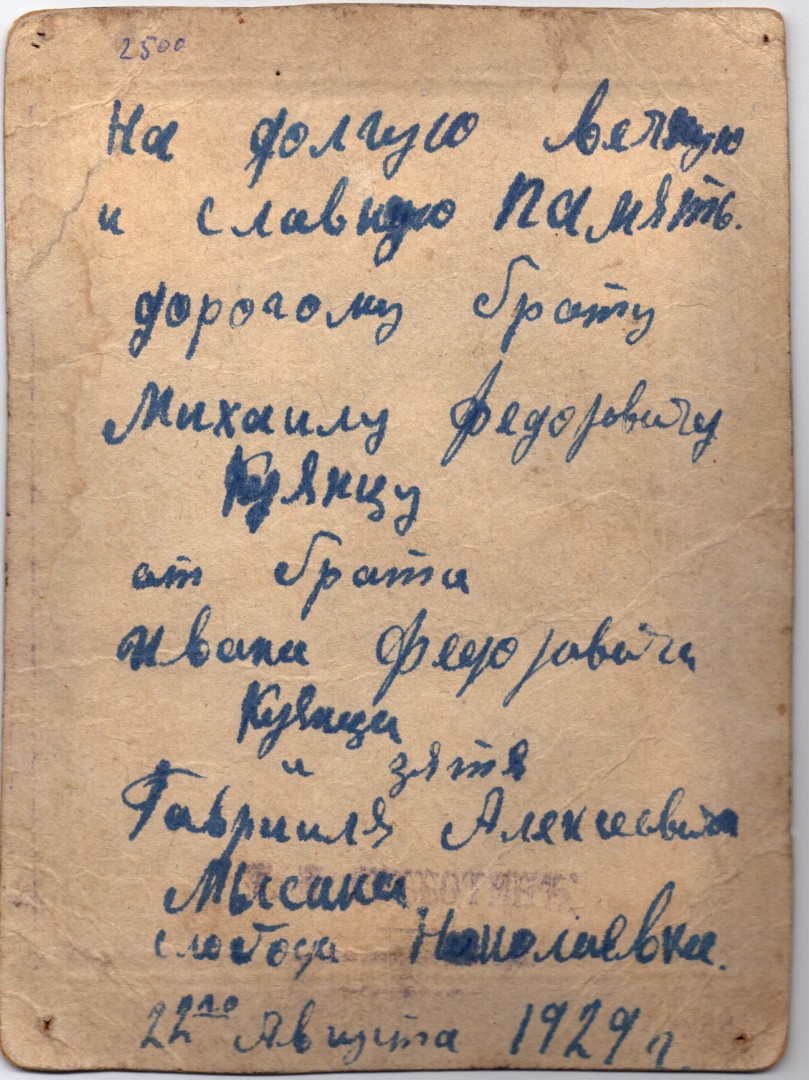 2500
На долгую вечную
и славную память.
дорогому брату
Михаилу Федоровичу
Куянцу
от брата
Ивана Федоровича
Куянца
и зятя
Гавриила Алексеевича
Мысака
слобода Николаевка.
22го Августа 1929 г.